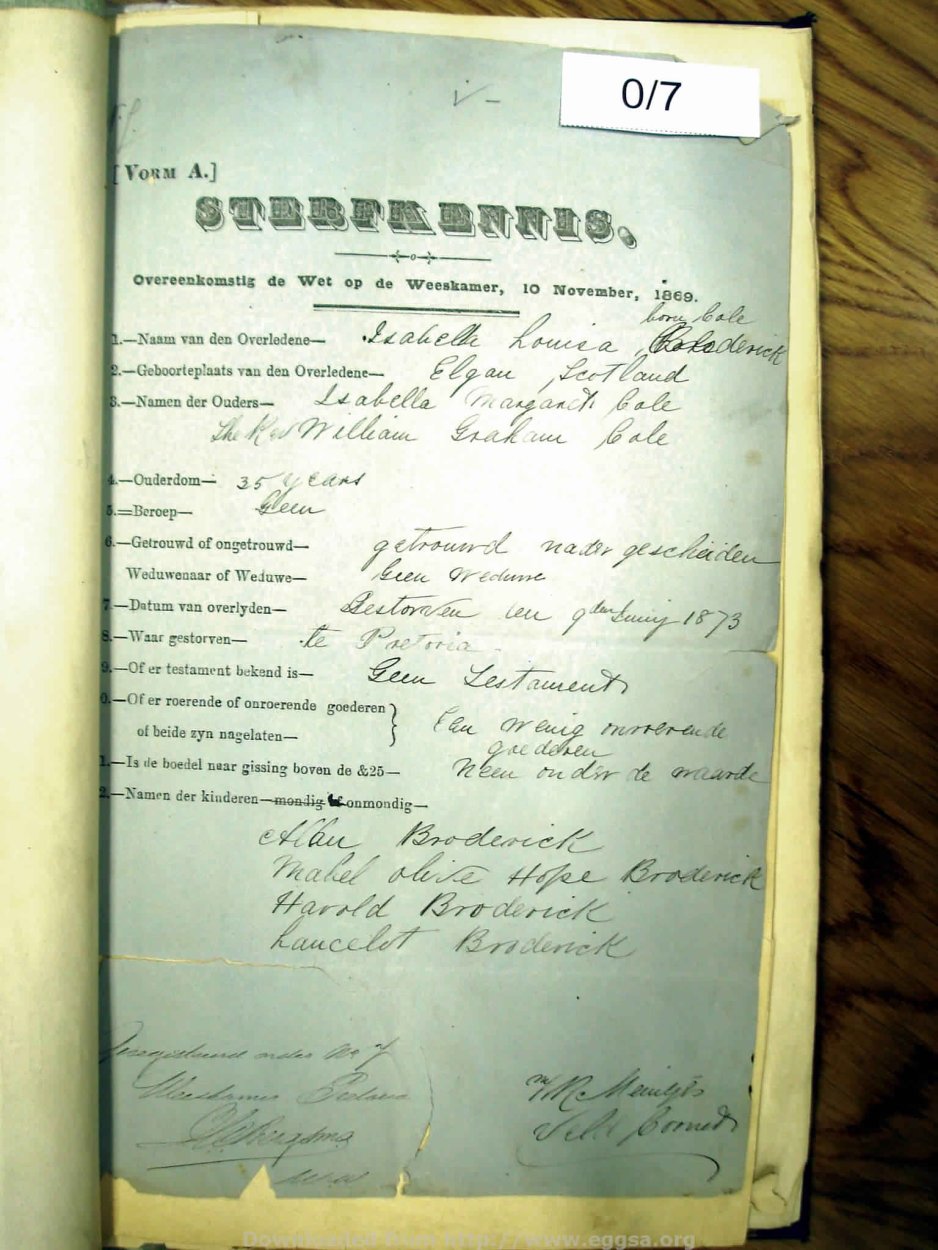 0/7
[VORM A.]
STERFKENNIS.
Overeenkomstig de Wet op de Weeskamer, 10 November, 1869.
born Cole
1.—Naam van den Overledene— Isabella Louisa Broderick
2.—Geboorteplaats van den Overledene— Elgan, Scotland
3.—Namen der Ouders— Isabella Margaret Cole
The Rev William Graham Cole
4.—Ouderdom— 35 years
5.—Beroep— Geen
6.—Getrouwd of ongetrouwd— getrouwd nader gescheiden
Weduwenaar of Weduwe— Geen Weduwe
7.—Datum van overlyden— Gestorven den 9den Juny 1873
8.—Waar gestorven— te Pretoria
9.—Of er testament bekend is— Geen Testament
0.—Of er roerende of onroerende goederen
of beide zyn nagelaten— } Een wenig onroerende
goederen
1.—Is de boedel naar gissing boven de £25— Neen onder de waarde
2.—Namen der kinderen—mondig of onmondig—
Allan Broderick
Mabel Olive Hope Broderick
Harold Broderick
Lancelot Broderick
Geregistreerd onder No 7
Weeskamer Pretoria
Meintjes
Veld Cornet
Downloaded from http://www.eggsa.org